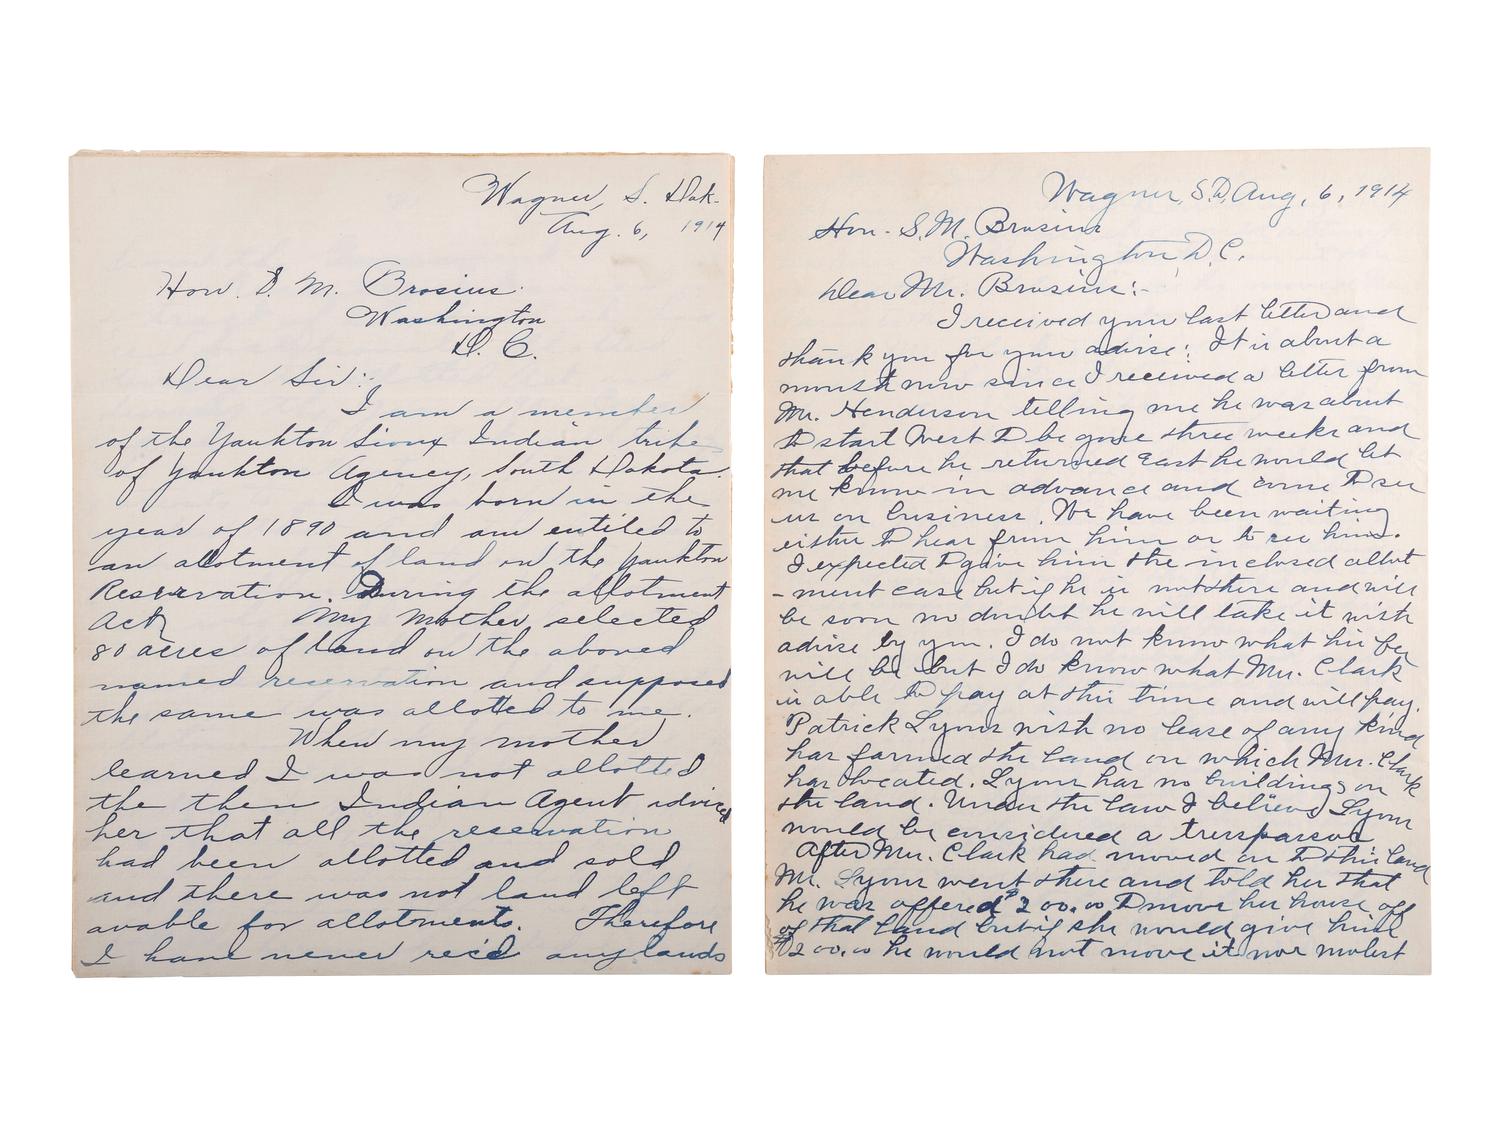 Wagner, S. Dak.
Aug. 6, 1914
Hon. S. M. Brosius.
Washington
D. C.
Dear Sir:-
I am a member
of the Yankton Sioux Indian tribe
of Yankton Agency, South Dakota.
I was born in the
year of 1890 and am entitled to
an allotment of land on the Yankton
Reservation. During the allotment
Act, My Mother selected
80 acres of land on the aboved
named reservation and supposed
the same was allotted to me.
When my mother
learned I was not allotted
the then Indian Agent adviced
her that all the reservation
had been allotted and sold
and there was not land left
avable for allotments. Therefore
I have never rec'd any lands
Wagner, S.D, Aug, 6, 1914
Hon. S. M. Brosius
Washington, D. C.
Dear Mr. Brosius:-
I received your last letter and
thank you for your advise: It is about a
month now since I received a letter from
Mr. Henderson telling me he was about
to start West to be gone three weeks and
that before he returned East he would let
me know in advance and come to see
us on business. We have been waiting
either to hear from him or to see him.
I expected to give him the inclosed allot
-ment case but if he is not there and will
be soon no doubt he will take it with
advise by you. I do not know what his fee
will be but I do know what Mrs. Clark
is able to pay at this time and will pay.
Patrick Lyons with no lease of any kind
has farmed the land on which Mrs. Clark
has located. Lyons has no buildings on
the land. Under the law I believe Lyons
would be considered a tresspassor
After Mrs. Clark had moved on to this land
Mr. Lyons went there and told her that
he was offered $200.00 to move her house off
of that land but if she would give him
$200.00 he would not move it nor molest